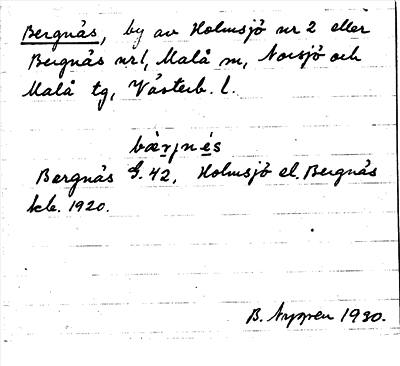 Bergnäs, by av Holmsjö nr 2 eller
Bergnäs nr 1, Malå sn, Norsjö och
Malå tg, Västerb. l.
bæ̀rjnés
Bergnäs G. 42, Holmsjö el. Bergnäs
kb. 1920.
B. Nyman 1930.